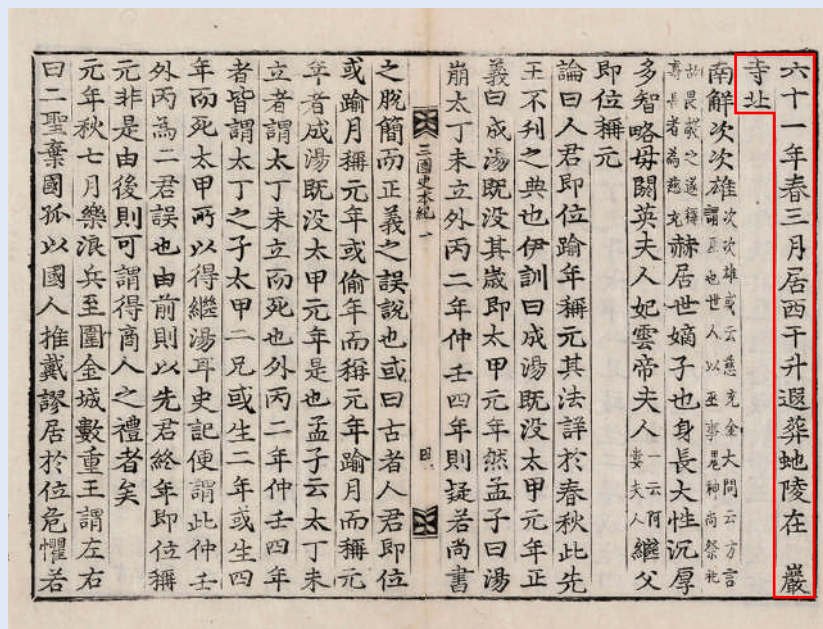 六十一年春三月居西干升遐葬虵陵在 巖
寺北
南解次次雄次次雄或云慈充金大問云方言謂巫也世人以巫事鬼神尚祭祀
故畏敬之遂稱尊長者為慈充赫居世嫡子也身長大性沉厚
多智略母閼英夫人妃雲帝夫人一云阿婁夫人繼父
即位稱元
論曰人君即位踰年稱元其法詳於春秋此先
王不刊之典也伊訓曰成湯既没太甲元年正
義曰成湯既没其歳即太甲元年然孟子曰湯
崩太丁未立外丙二年仲壬四年則疑若尚書
三國史本紀一
四
之脫簡而正義之誤說也或曰古者人君即位
或踰月稱元年或踰年而稱元年踰月而稱元
年者成湯既没太甲元年是也孟子云太丁未
立者謂太丁未立而死也外丙二年仲壬四年
者皆謂太丁之子太甲二兄或生二年或生四
年而死太甲所以得繼湯耳史記便謂此仲壬
外丙為二君誤也由前則以先君終年即位稱
元非是由後則可謂得商人之禮者矣
元年秋七月樂浪兵至圍金城數重王謂左右
曰二聖棄國孤以國人推戴謬居於位危懼若